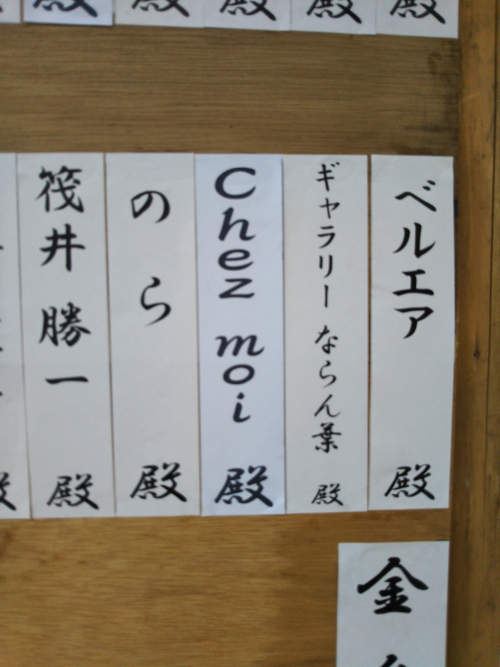 殿 殿 殿 殿 殿
ベルエア 殿
ギャラリー ならん葉 殿
Chez moi 殿
のら 殿
筏井 勝一 殿
金